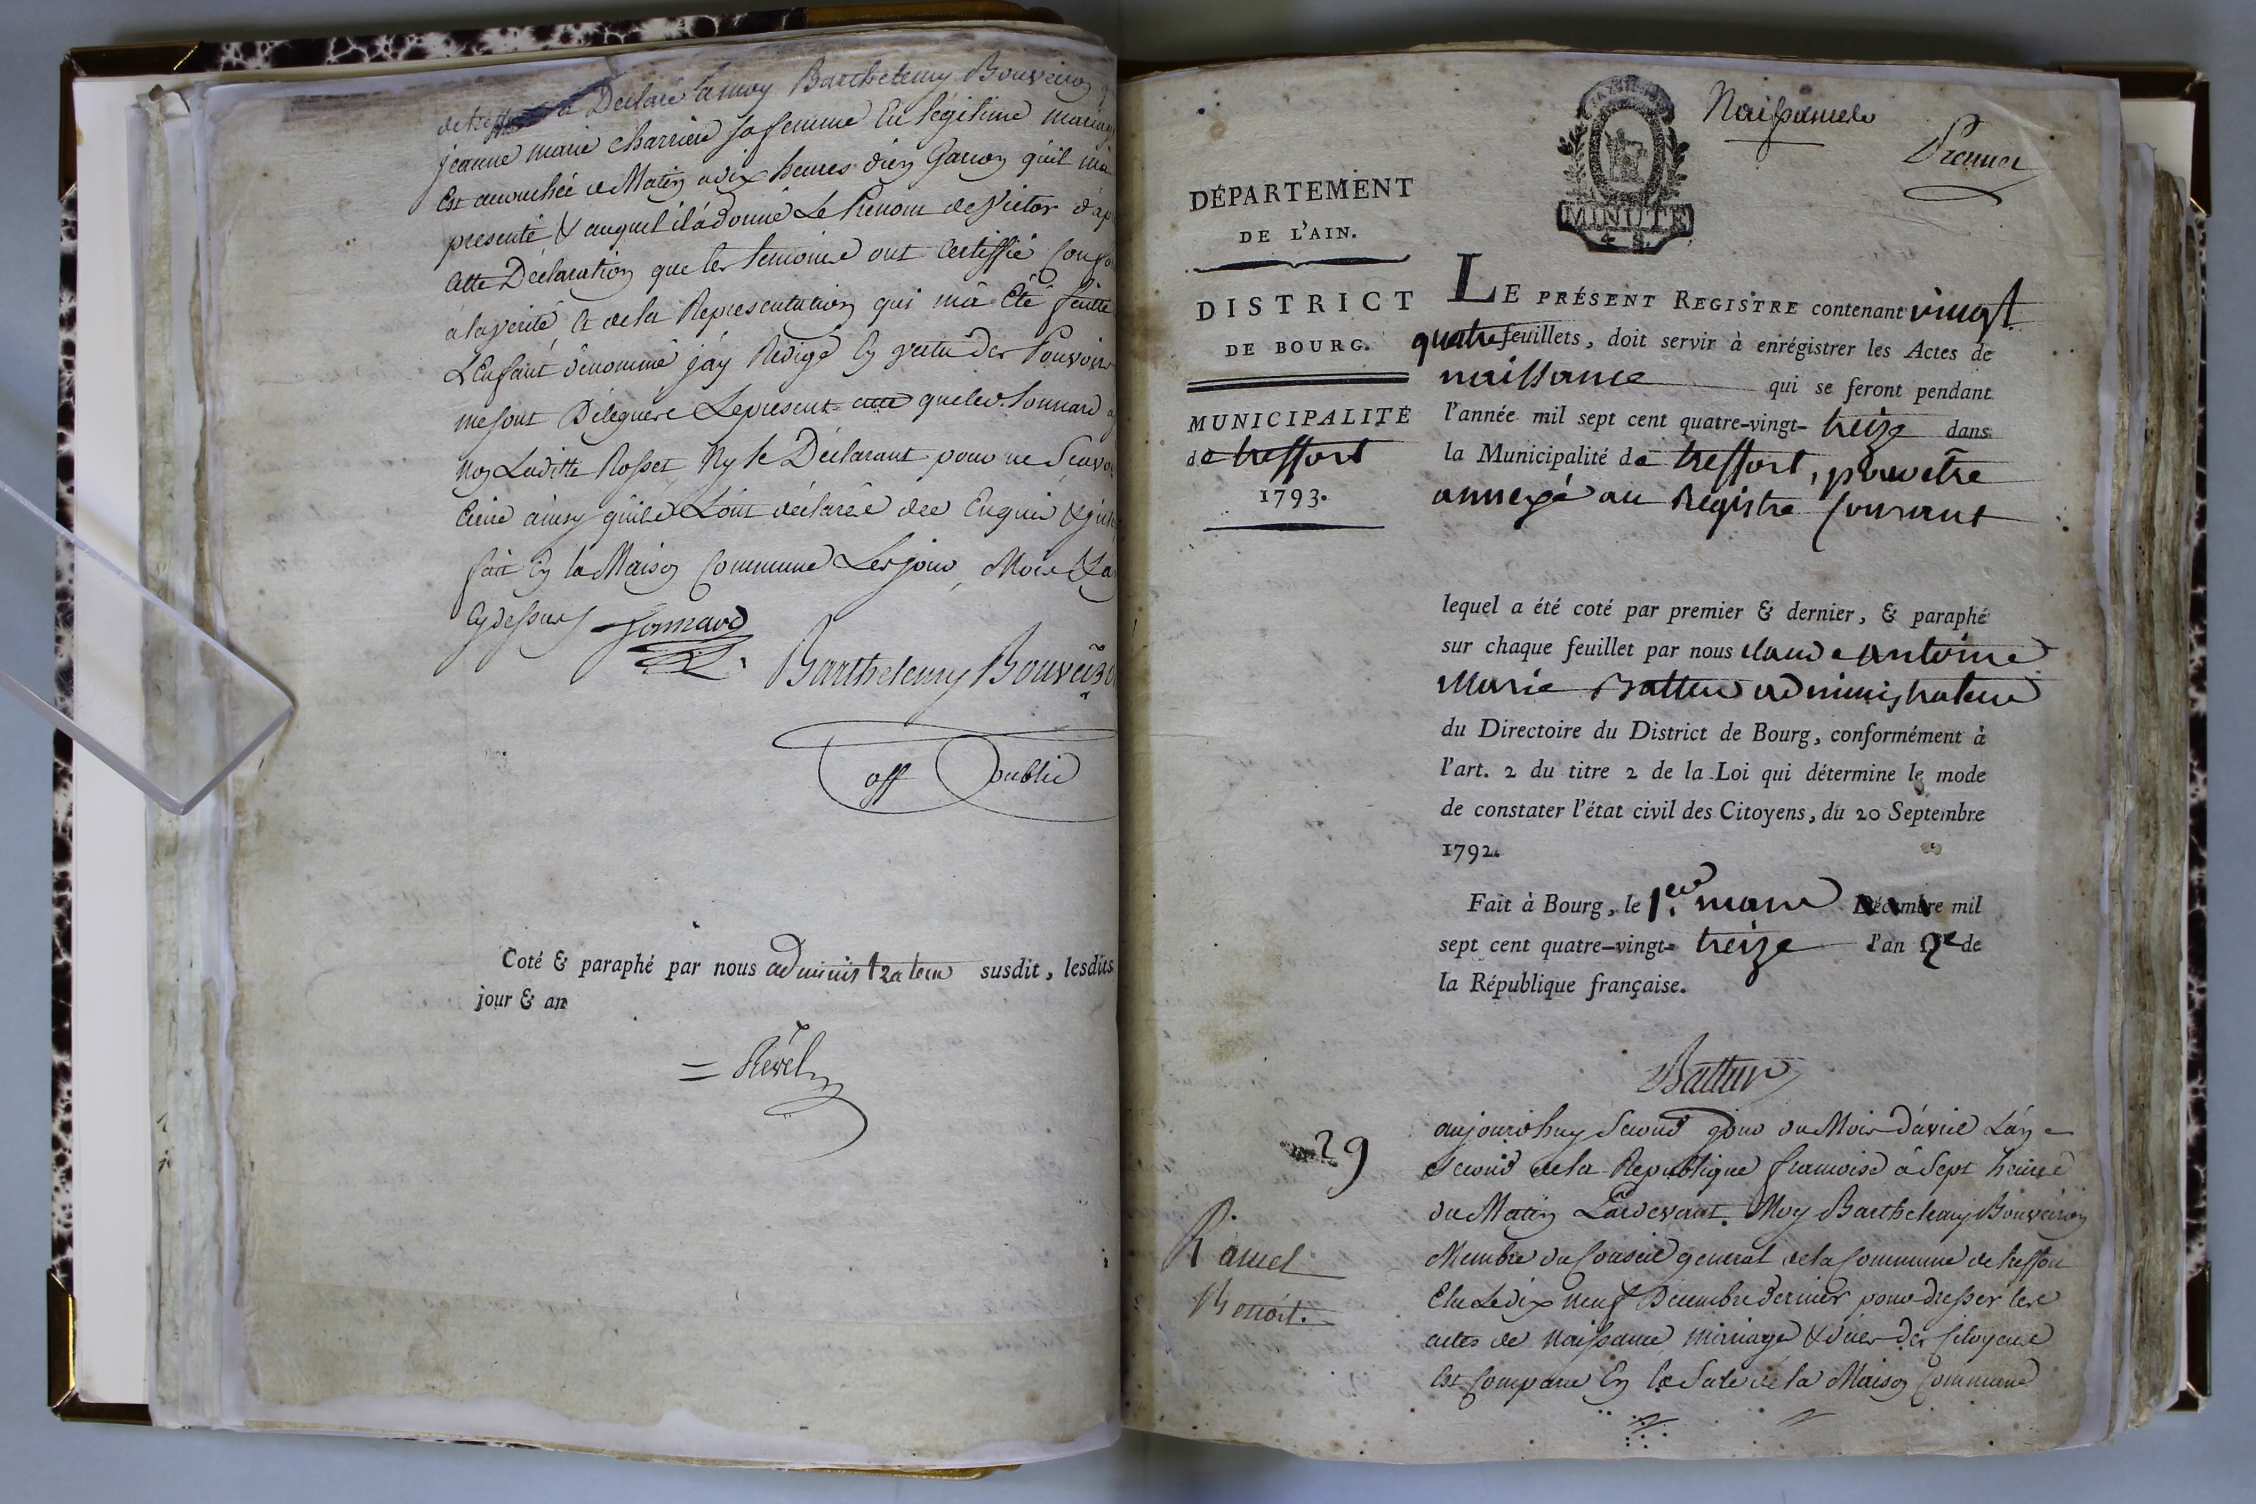 de treffort a Déclaré a moy Barthelemy Bouveiron
jeanne marie charriere sa femme En légitime mariage
Est accouchée ce Matin a dix heures d'un Garcon qu'il m'a
presenté & auquel il a donné Le Prenom de Victor d'ap
cette Déclaration que les temoins ont certiffié
a la verité & de la Representation qui m'a Eté faitte
L'Enfant denommé j'ay Redigé En vertu des Pouvoirs
me sont Délégués Le present que led. Sonnard
Non Laditte Rosset Ny le Déclarant pour ne Scavoir
Ecrire ainsy qu'ils L'ont déclaré de ce Enquis
fait En la Maison Commune Les jour, Mois & a
Cy dessus Sonnard
Barthelemy Bouveiro
off public
Coté & paraphé par nous administrateur susdit, lesdits
jour & an
= Révél
Naissances
Premier
MINUTE
4 S.
DÉPARTEMENT
DE L'AIN.
DISTRICT
DE BOURG.
MUNICIPALITÉ
de treffort
1793.
LE PRÉSENT REGISTRE contenant vingt
quatre feuillets, doit servir à enrégistrer les Actes de
naissance qui se feront pendant
l'année mil sept cent quatre-vingt- treize dans
la Municipalité de treffort, pour être
annexé au Registre Courant
lequel a été coté par premier & dernier, & paraphé
sur chaque feuillet par nous claude antoine
Marie Battur administrateur
du Directoire du District de Bourg, conformément à
l'art. 2 du titre 2 de la Loi qui détermine le mode
de constater l'état civil des Citoyens, du 20 Septembre
1792.
Fait à Bourg, le 1er mars Décembre mil
sept cent quatre-vingt- treize l'an 2e de
la République française.
Battur
29
Ramel
Benoit.
aujourd'huy Second jour du Mois d'avril L'an
second de la Republique francoise à Sept heures
du Matin Pardevant Moy Barthelemy Bouveiron
Membre du Conseil general de la Commune de treffort
Elu Le dix neuf Décembre dernier pour dresser les
actes de Naissance Mariage & décès des Citoyens
Est Comparu En la Sale de la Maison Commune